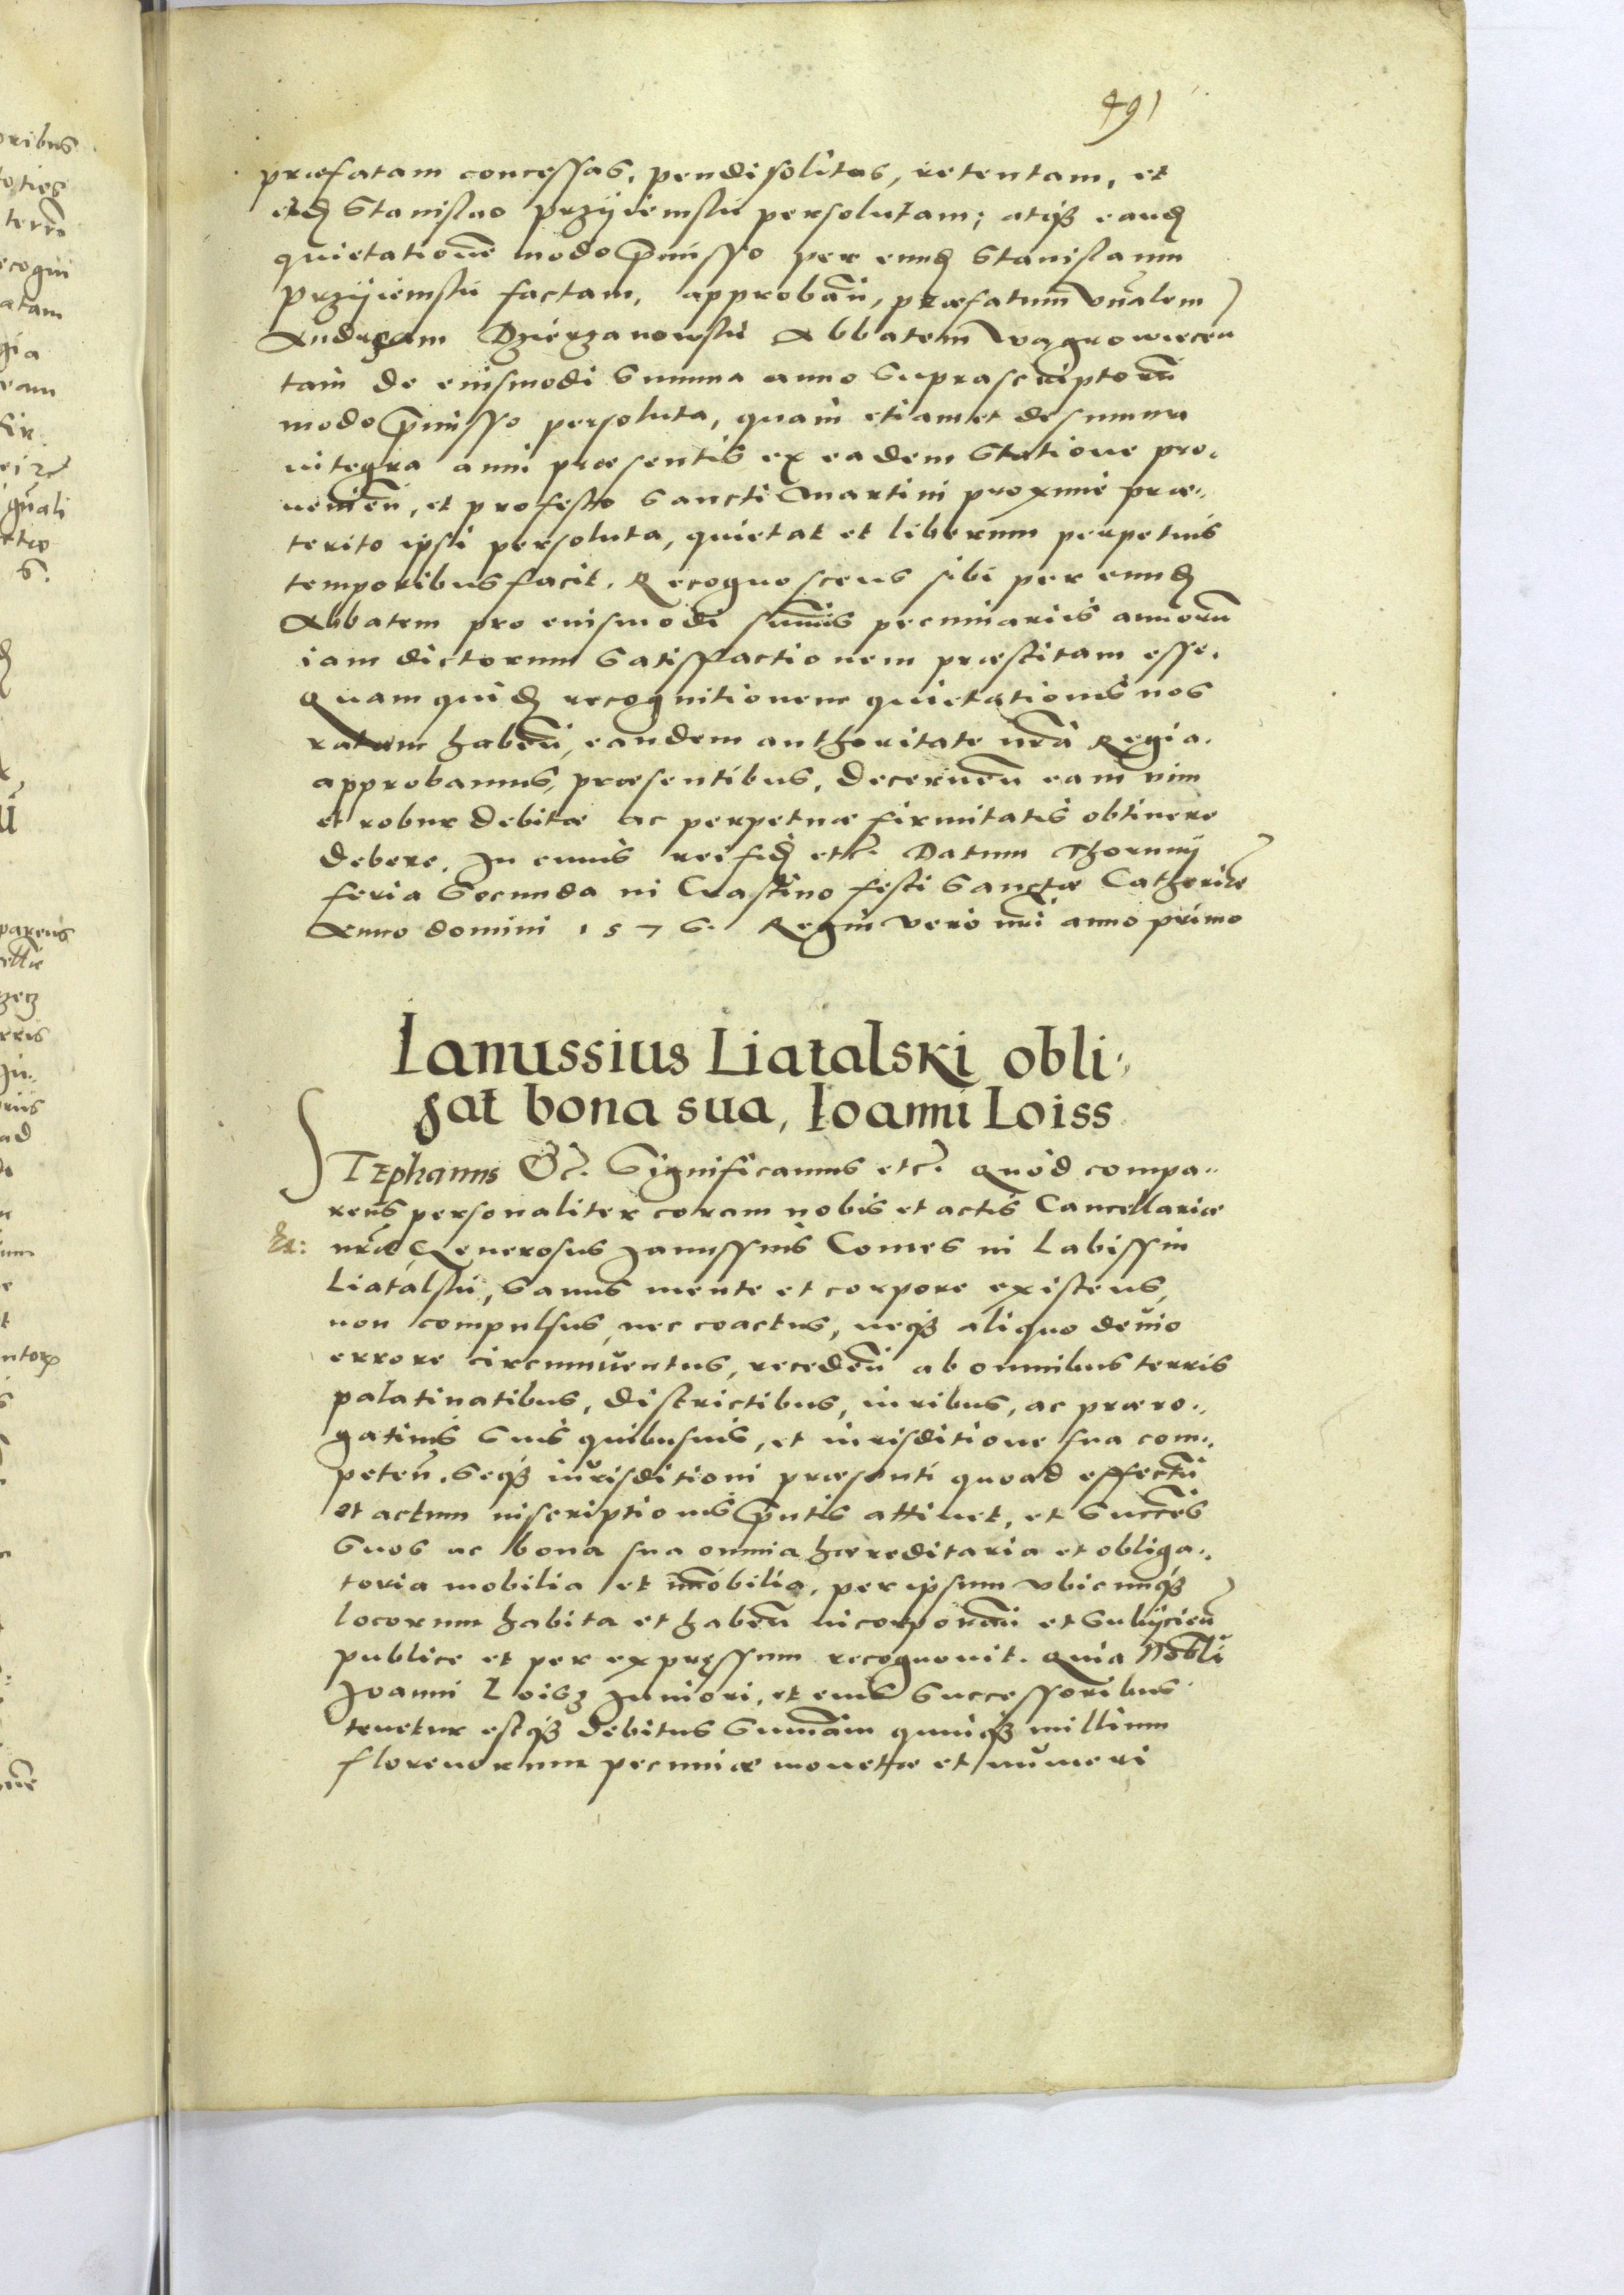 491
præfatam concessas, pendi solitas, retentam, et
eid Stanislao Przÿiemski persolutam; atq3 eand
quietatione modo pmisso per eund Stanislaum
Przÿiemski factam, approbañ, præfatum Vñalem
Andream Dzierzanowski Abbatem Vagrowiecen
tam de eiusmodi Summa anno Suprascriptorũ
modo pmisso persoluta, quam etiam et de summa
integra anni præsentis ex eadem Statione pro,
venieñ, et pro festo Sancti Martini proxime præ,,
terito ipsi persoluta, quietat et liberum perpetuis
temporibus facit. Recognoscens sibi per eund
Abbatem pro eiusmodi sum̃is pecuniariis annorũ
iam dictorum Satisfactionem præstitam esse.
Quam quid recognitionem quietationis nos
ratam habeñ, eandem authoritate nrã Regia.
approbamus, præsentibus, deceruen eam vim
et robur debitæ ac perpetuæ firmitatis obtinere
debere. In cuius rei fid etc. Datum Thorunÿ
feria Secunda in Crastino festi Sanctæ Catherinæ
Anno domini 1576. Regni vero nri anno primo
Ianussius Liatalski obli,
gat bona sua, Ioanni Loiss
STEphanus &c. Significamus etc. Quod compa,,
rens personaliter coram nobis et actis Cancellariæ
nræ, Generosus Janussius Comes in Labissin
Liatalski, Sanus mente et corpore existens,
non compulsus, nec coactus, neq3 aliquo devio
errore circumventus, recedeñ ab omnibus terris
palatinatibus, districtibus, iuribus, ac præro,,
gativis Suis quibusuis, et iurisditione sua com,,
peteñ, Seq3 iurisditioni præsenti quoad effectũ
et actum inscriptionis pntis attinet, et Succes
Suos ac bona sua omnia hæreditaria et obliga,,
toria mobilia et im̃obilia, per ipsum vbicunq3
locorum habita et habeñ incorporañ et Subÿcieñ
publice et per expressum recognouit. Quia Nobli
Joanni Loisz Juniori, et eius Successoribus
tenetur estq3 debitus Sum̃am quinq3 millium
florenorum pecuniæ monetæ et numeri